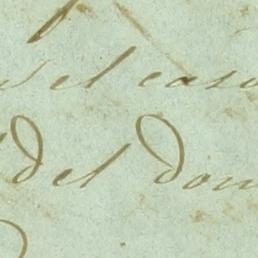 el caso
del don